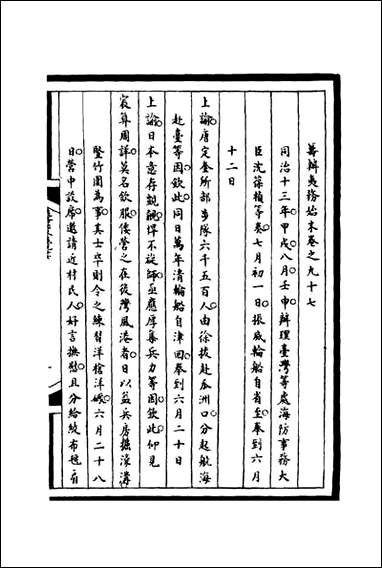 籌辦夷務始末卷之九十七
同治十三年甲戌八月壬申辦理臺灣等處海防事務大
臣沈葆楨等奏七月初一日振威輪船自省至奉到六月
十二日
上諭唐定奎所部步隊六千五百人由徐拔赴瓜洲口分起航海
赴臺等因欽此同日萬年清輪船自津回奉到六月二十日
上諭日本意存覬覦悍不旋師亟應厚集兵力等因欽此仰見
宸算周詳莫名欽服倭營之在後灣風港者日以蓋兵房掘濠溝
豎竹圍為事其士卒則令之練習洋槍洋礮六月二十八
日營中設席邀請近村民人好言撫慰且分給絨布氊扇